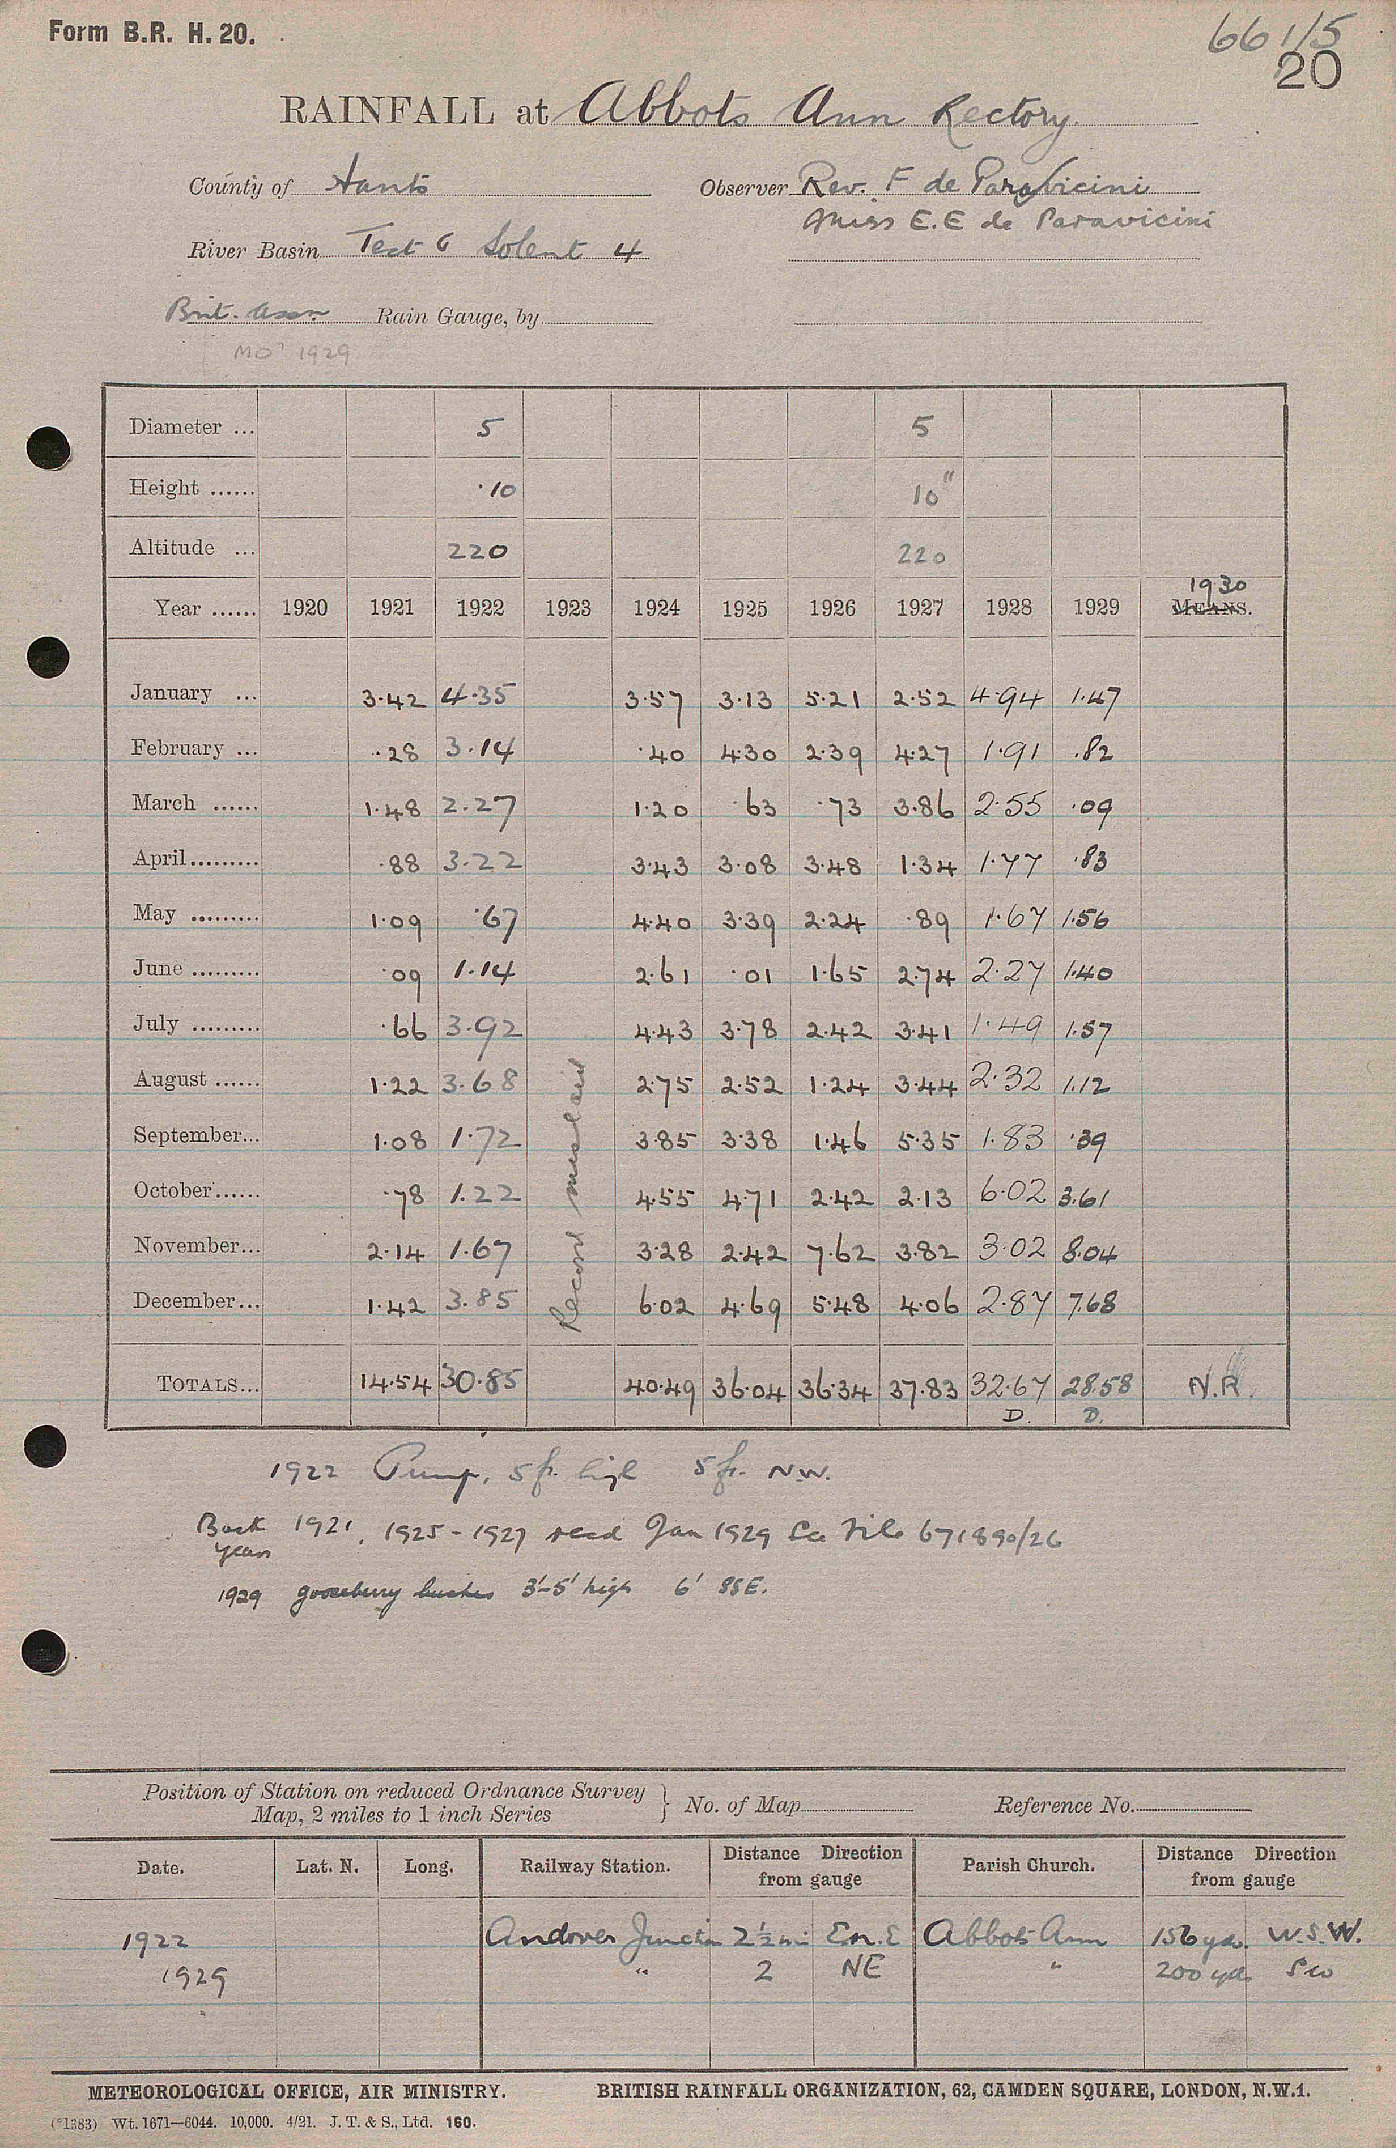 Form B.R. H. 20.
661/5
20
RAINFALL at Abbots Ann Rectory
County of Hants Observer Rev. F de Paravicini
Miss E.E de Paravicini
River Basin Test 6 Solent 4
Brit. Assn Rain Gauge, by
MO 1929
Diameter ... 5 5
Height ...... ·10 10"
Altitude ... 220 220
1930
Year ...... 1920 1921 1922 1923 1924 1925 1926 1927 1928 1929 MEANS.
January ... 3·42 4·35 3·57 3·13 5·21 2·52 4·94 1·47
February ... ·28 3·14 ·40 4·30 2·39 4·27 1·91 ·82
March ...... 1·48 2·27 1·20 ·63 ·73 3·86 2·55 ·09
April......... ·88 3·22 3·43 3·08 3·48 1·34 1·77 ·83
May ......... 1·09 ·67 4·40 3·39 2·24 ·89 1·67 1·56
June ......... ·09 1·14 2·61 ·01 1·65 2·74 2·27 1·40
July ......... ·66 3·92 4·43 3·78 2·42 3·41 1·49 1·57
August ...... 1·22 3·68 2·75 2·52 1·24 3·44 2·32 1·12
September... 1·08 1·72 3·85 3·38 1·46 5·35 1·83 ·39
October...... ·78 1·22 4·55 4·71 2·42 2·13 6·02 3·61
November... 2·14 1·67 3·28 2·42 7·62 3·82 3·02 8·04
December... 1·42 3·85 6·02 4·69 5·48 4·06 2·87 7·68
Record mislaid
TOTALS... 14·54 30·85 40·49 36·04 36·34 37·83 32·67 28·58 N.R.
D. D.
1922 Pump, 5 ft. high 5 ft. N.W.
Back 1921, 1925 - 1927 recd Jan 1929 See File 671890/26
years
1929 gooseberry bushes 3'-5' high 6' SSE.
Position of Station on reduced Ordnance Survey
Map, 2 miles to 1 inch Series } No. of Map Reference No.
Date. Lat. N. Long. Railway Station. Distance Direction from gauge Parish Church. Distance Direction from gauge
1922 Andover Junction 2½ mi E.N.E Abbots Ann 156 yds. W.S.W.
1929 " 2 NE " 200 yds SW
METEOROLOGICAL OFFICE, AIR MINISTRY. BRITISH RAINFALL ORGANIZATION, 62, CAMDEN SQUARE, LONDON, N.W.1.
(*1383) Wt. 1671—6044. 10,000. 4/21. J. T. & S., Ltd. 160.